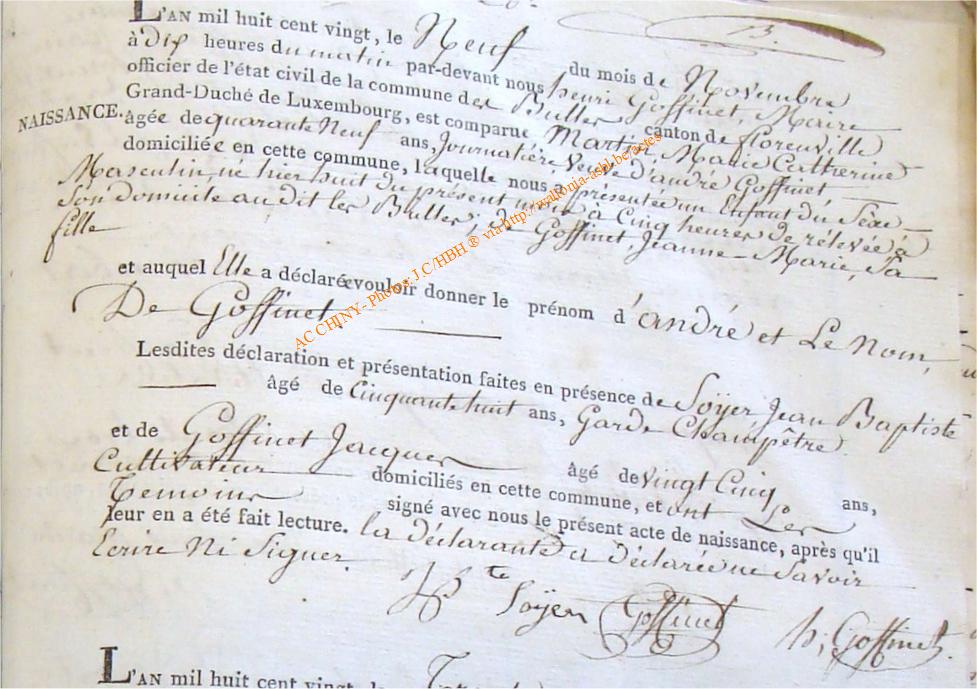 13.
L'AN mil huit cent vingt, le Neuf du mois de Novembre
à Dix heures du matin par-devant nous henri Goffinet, Maire
officier de l'état civil de la commune de Les Bulles canton de florenville
Grand-Duché de Luxembourg, est comparue Martin, Marie Catherine
NAISSANCE.
âgée de quarante Neuf ans, Journalière, Veuve d'andré Goffinet
domiciliée en cette commune, laquelle nous a présentée un Enfant du Sexe
Masculin, né hier huit du présent mois à Cinq heures de rélevée à
Son domicile au dit les Bulles, de Goffinet, Jeanne-Marie, Sa
fille
et auquel Elle a déclarée vouloir donner le prénom d'andré et Le Nom,
De Goffinet,
Lesdites déclaration et présentation faites en présence de Soÿer Jean Baptiste
âgé de Cinquante huit ans, Garde Champêtre.
et de Goffinet Jacques âgé de vingt Cinq ans,
Cultivateur domiciliés en cette commune, et ont Les
Temoins signé avec nous le présent acte de naissance, après qu'il
leur en a été fait lecture. la déclarante a déclarée ne Savoir
Ecrire Ni Signer.
JB te Soÿer Goffinet h; Goffinet.
L'AN mil huit cent vingt, le
AC CHINY - Photos: J.C/HBH ® via http://walkonia-asbl.be/actes